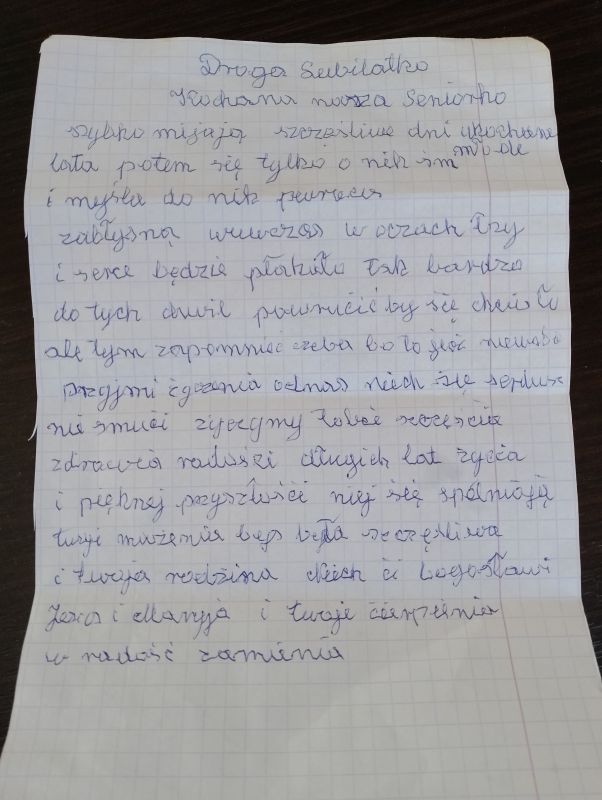 Droga Subilatko
Kochana nasza Seniorko
szybko mijają szczęśliwe dni ukochane
lata potem się tylko o nik śni
mode
i myślą do nik pewraca
zabłysną wuwczas w oczach łzy
i serce będzie płakało tak bardzo
do tych chwil pawrucić by się chciało
ale tym zapomnieć czeba bo to jest
przyjmi rzyczenia odnas niech się serdusz
nie smuci życzymy tobie szczęścia
zdrowia radości długich lat życia
i pięknej przyszłości niej się spełniają
twoje mażenia bęs była szczęśliwa
i twoja rodzina niech ci bogosławi
Jezus i Maryja i twoje cierpienia
w radość zamienia